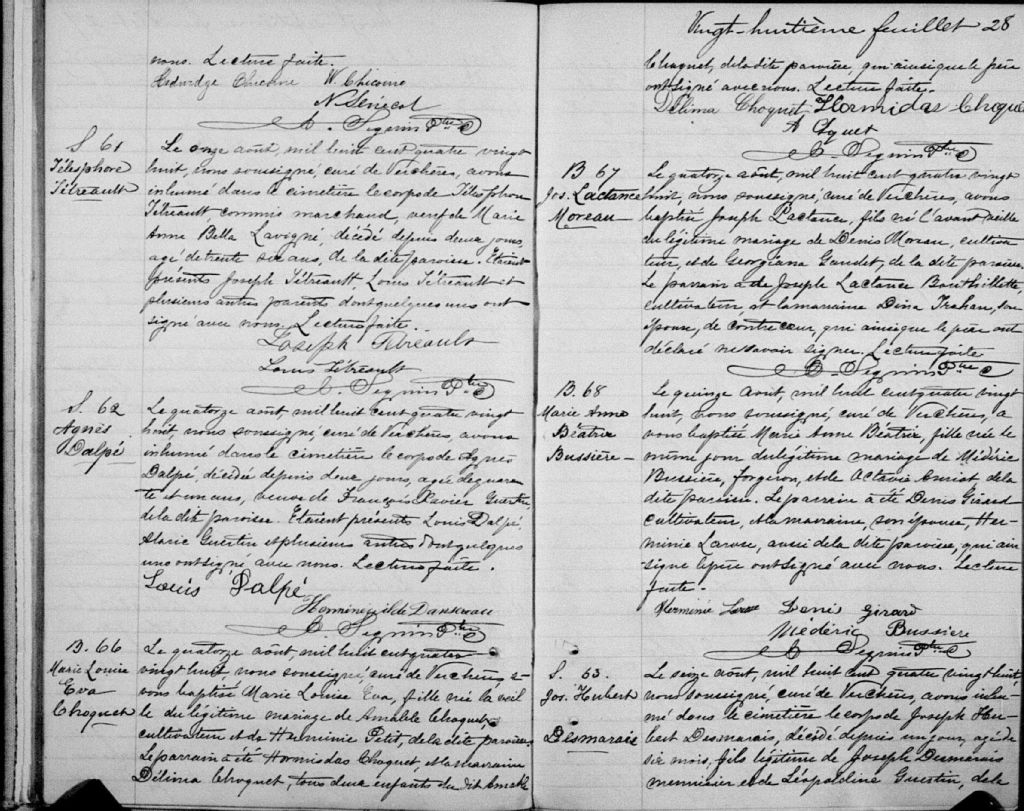 nous. Lecture faite.
Hedwidge Chicoine W. Chicoine
N Sénécal
Seguin Ptre
S. 61
Télesphore
Tétreault
Le onze août, mil huit cent quatre vingt
huit, nous soussigné, curé de Verchères, avons
inhumé dans le cimetière le corps de Télesphore
Tétreault commis marchand, veuf de Marie
Anne Bella Lavigne, décédé depuis deux jours,
agé de trente six ans, de la dite paroisse. Etaient
présents Joseph Tétreault, Louis Tétreault et
plusieurs autres parents dont quelques uns ont
signé avec nous. Lecture faite.
Joseph Tétreault
Louis Tétreault
Seguin Ptre
S. 62
Agnès
Dalpé
Le quatorze août, mil huit cent quatre vingt
huit nous soussigné, curé de Verchères, avons
inhumé dans le cimetière le corps de Agnès
Dalpé, décédée depuis deux jours, agée de quaran
te et un ans, veuve de François Xavier Guertin,
de la dite paroisse. Etaient présents Louis Dalpé,
Guertin et plusieurs autres dont quelques
uns ont signé avec nous. Lecture faite.
Louis Dalpé
Herménégilde Dansereau
Seguin Ptre
B. 66
Marie Louise
Eva
Choquet
Le quatorze août, mil huit cent quatre
vingt huit nous soussigné, curé de Verchères a
vons baptisé Marie Louise Eva, fille née la veil
le du légitime mariage de Amable Choquet
cultivateur et de Herminie Petit, de la dite paroisse.
Le parrain a été Hormisdas Choquet, et la marraine
Délima Choquet, tous deux enfants du dit Amable
Vingt-huitième feuillet 28
Choquet, de la dite paroisse, qui ainsi que le père
ont signé avec nous. Lecture faite.
Délima Choquet Hormidas Choque
A Coquet
Seguin Ptre
B 67
Jos. Lactance
Moreau
Le quatorze août, mil huit cent quatre vingt
huit, nous soussigné, curé de Verchères, avons
baptisé Joseph Lactance, fils né l'avant veille
du légitime mariage de Denis Moreau, cultiva
teur, et de Georgiana Gaudet, de la dite paroisse.
Le parrain a été Joseph Lactance Bouthillette,
cultivateur, et la marraine Dina Trahan, son
épouse, de Contrecoeur, qui ainsi que le père ont
déclaré ne savoir signer. Lecture faite
Seguin Ptre
B. 68
Marie Anne
Béatrix
Bussière
Le quinze Août, mil huit cent quatre vingt
huit, nous soussigné, curé de Verchères, a
vons baptisé Marie Anne Béatrix, fille née le
même jour du légitime mariage de Médéric
Bussière, forgeron, et de Octavie de la
dite paroisse. Le parrain a été Denis Girard
cultivateur, et la marraine, son épouse, Her-
minie Larose, aussi de la dite paroisse, qui ain
si que le père ont signé avec nous. Lecture
faite.
Herminie Larose Denis Girard
Médéric Bussiere
Seguin Ptre
S. 63.
Jos. Hubert
Desmarais
Le seize août, mil huit cent quatre vingt huit
nous soussigné, curé de Verchères, avons inhu-
mé dans le cimetière le corps de Joseph Hu-
bert Desmarais, décédé depuis un jour, agé de
six mois, fils légitime de Joseph Desmarais
meunier et de Léopoldine Guertin, de la